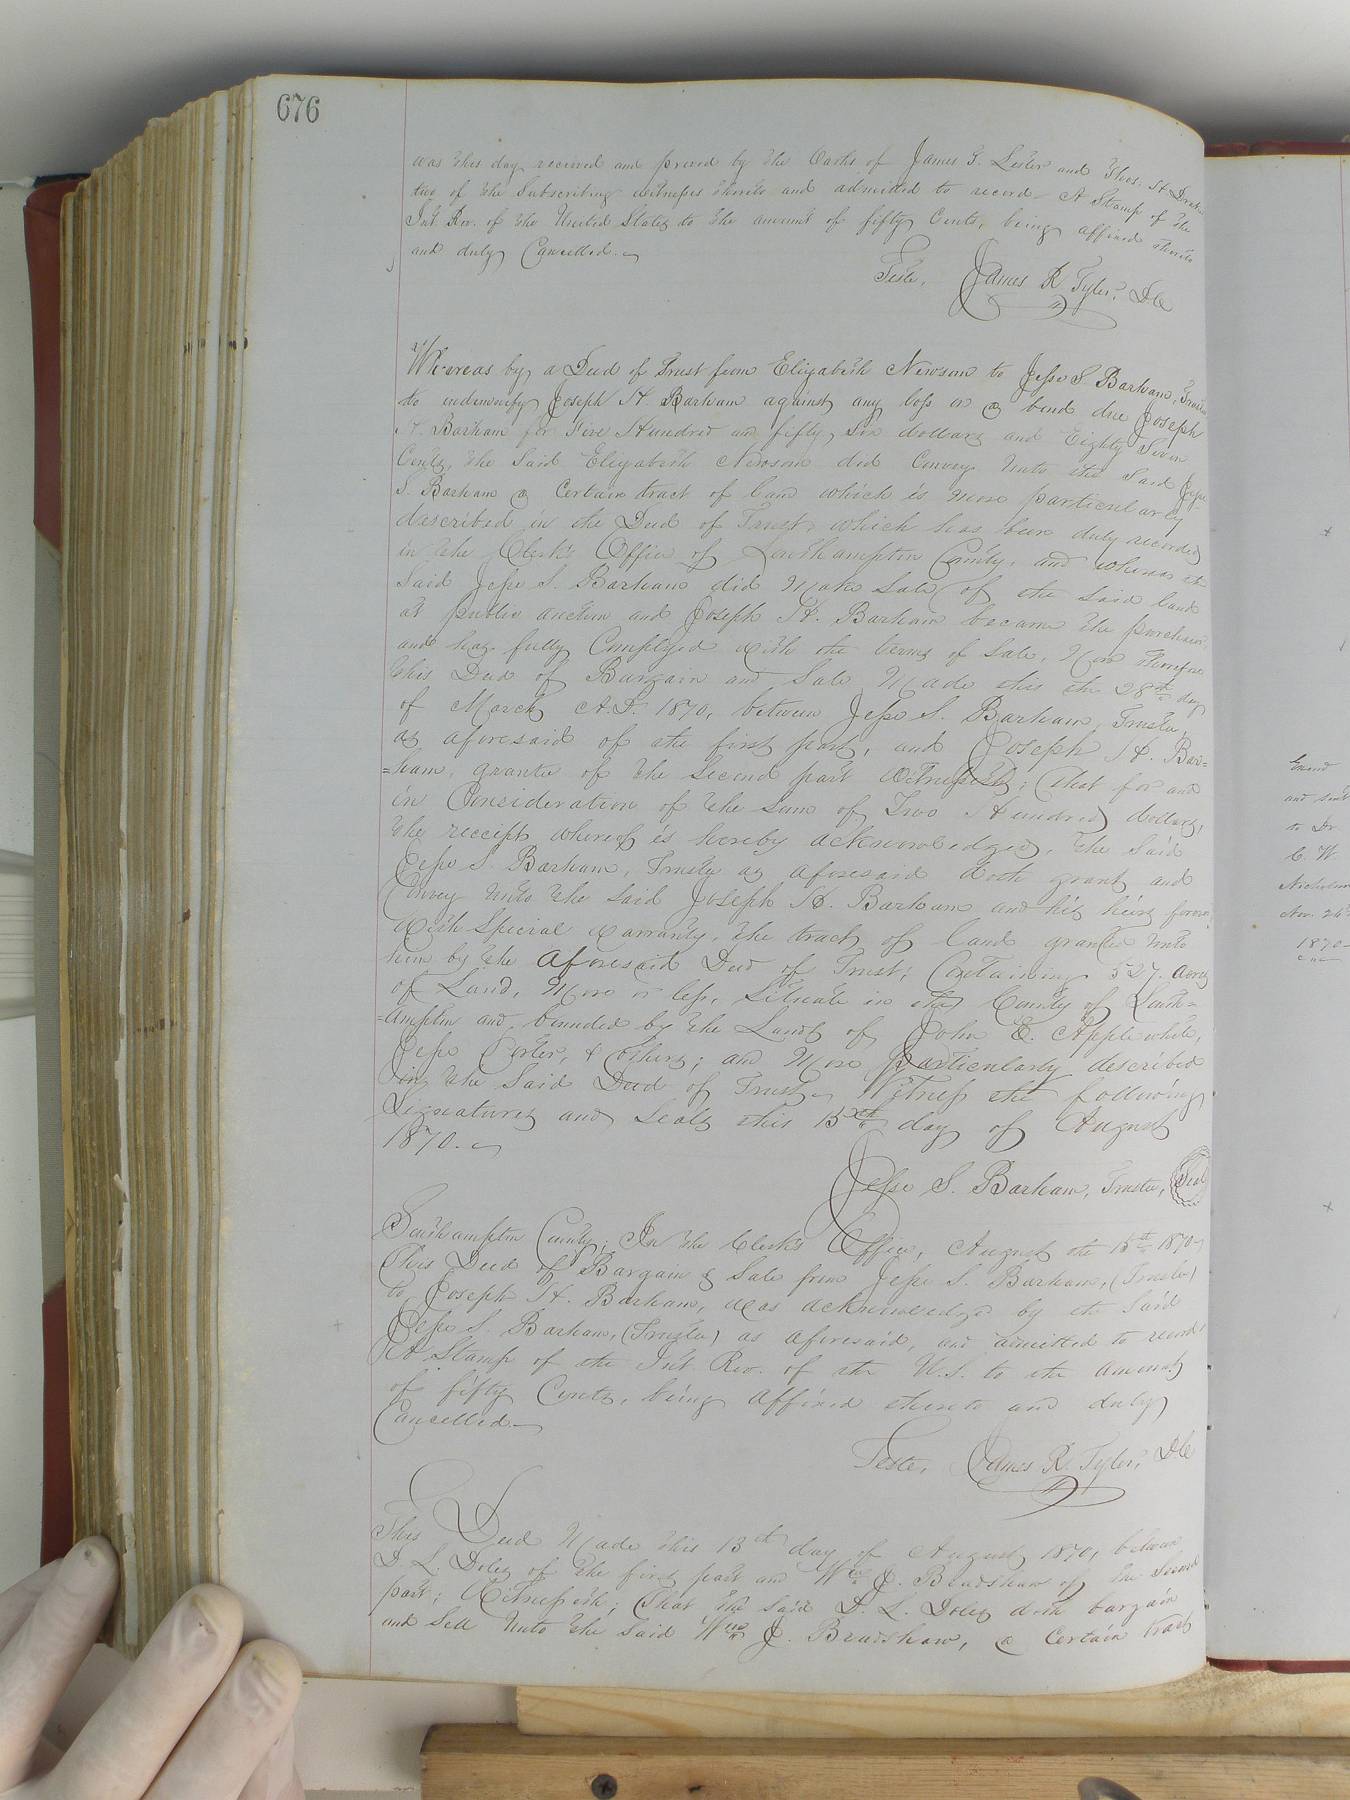 676
was this day received and proved by the Oaths of James G. Lester and Thos. H. Drake
two of the Subscribing witnesses thereto and admitted to record - A Stamp of the
Int. Rev. of the United States to the amount of fifty Cents, being affixed thereto
and duly Cancelled.
Teste, James R. Tyler, DC
Whereas by a Deed of Trust from Elizabeth Newsom to Jesse S. Barham, Trustee
to indemnify Joseph H Barham against any loss on a bond due Joseph
H. Barham for Five Hundred and fifty six dollars and Eighty Seven
Cents, the Said Elizabeth Newsom did Convey Unto the Said Jesse
S. Barham a Certain tract of land which is more particularly
described in the Deed of Trust, which has been duly recorded
in the Clerk's Office of Southampton County, and whereas the
Said Jesse S. Barham did Make Sale of the Said land
at public auction and Joseph H. Barham became the purchaser,
and has fully Complyed with the terms of Sale, Now therefore
this Deed of Bargain and Sale Made this the 28th day
of March A.D. 1870, between Jesse S. Barham, Trustee,
as aforesaid of the first part, and Joseph H. Bar=
=ham, grantee of the Second part Witnesseth; That for and
in Consideration of the Sum of Two Hundred dollars,
the receipt whereof is hereby acknowledged, the Said
Jesse S. Barham, Trustee as aforesaid doth grant and
Convey Unto the Said Joseph H. Barham and his heirs forever
With Special Warranty, the tract of land granted Unto
him by the Aforesaid Deed of Trust; Containing 527. Acres
of Land, More or less, Situate in the County of South=
=ampton and bounded by the Lands of John E. Applewhite,
Jesse Porter, & others; and More particularly described
in the Said Deed of Trust. Witness the following
Signatures and Seals this 15th day of August
1870.
Jesse S. Barham, Trustee, Seal
Southampton County; In the Clerk's Office, August the 15th 1870
This Deed of Bargain & Sale from Jesse S. Barham, (Trustee)
to Joseph H. Barham, was acknowledged by the Said
Jesse S. Barham, (Trustee) as aforesaid, and admitted to record
A Stamp of the Int. Rev. of the U.S. to the amount
of fifty Cents, being affixed thereto and duly
Cancelled
Teste, James R. Tyler, DC
This Deed Made this 13th day of August 1870, between
D. L. Doles of the first part and Wm J. Bradshaw of the Second
part; Witnesseth; That the Said D. L. Doles doth bargain
and Sell Unto the Said Wm J. Bradshaw, a Certain tract
and sent
to Dr
C. W.
Nov. 24
1870